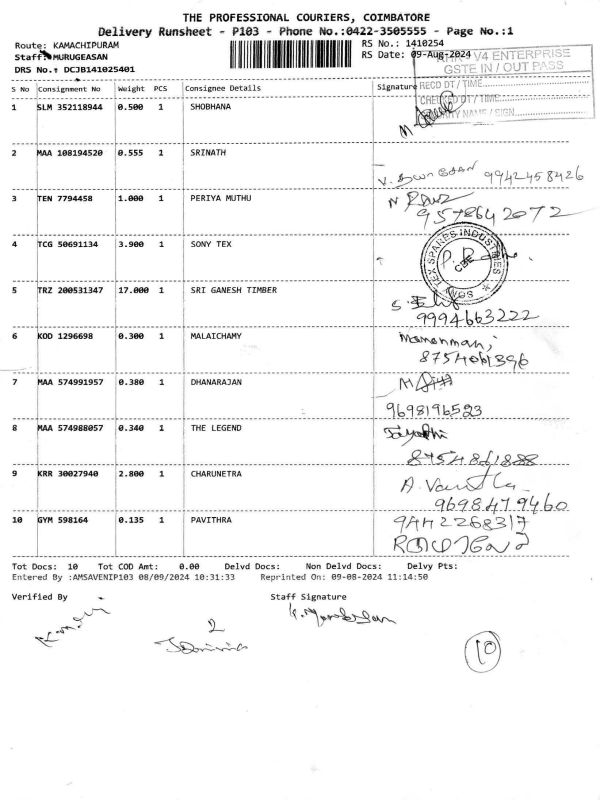 THE PROFESSIONAL COURIERS, COIMBATORE
Delivery Runsheet - P103 - Phone No.:0422-3505555 - Page No.:1
Route: KAMACHIPURAM
RS No.: 1410254
Staff: MURUGEASAN
RS Date: 09-Aug-2024
DRS No.: DCJB141025401
V4 ENTERPRISE
GSTE IN / OUT PASS
RECD DT / TIME
DT / TIME
NAME / SIGN
S No Consignment No Weight PCS Consignee Details Signature
1 SLM 352118944 0.500 1 SHOBHANA
2 MAA 108194520 0.555 1 SRINATH
9942458426
3 TEN 7794458 1.000 1 PERIYA MUTHU
9578642072
4 TCG 50691134 3.900 1 SONY TEX
SONY TEX SPARES INDUSTRIES
CBE
5 TRZ 200531347 17.000 1 SRI GANESH TIMBER
9994663222
6 KOD 1296698 0.300 1 MALAICHAMY
8754061396
7 MAA 574991957 0.380 1 DHANARAJAN
9698196523
8 MAA 574988057 0.340 1 THE LEGEND
9 KRR 30027940 2.800 1 CHARUNETRA
A. Vanitha
9698479460
10 GYM 598164 0.135 1 PAVITHRA
9442268317
Tot Docs: 10 Tot COD Amt: 0.00 Delvd Docs: Non Delvd Docs: Delvy Pts:
Entered By :AMSAVENIP103 08/09/2024 10:31:33 Reprinted On: 09-08-2024 11:14:50
Verified By
Staff Signature
2
10